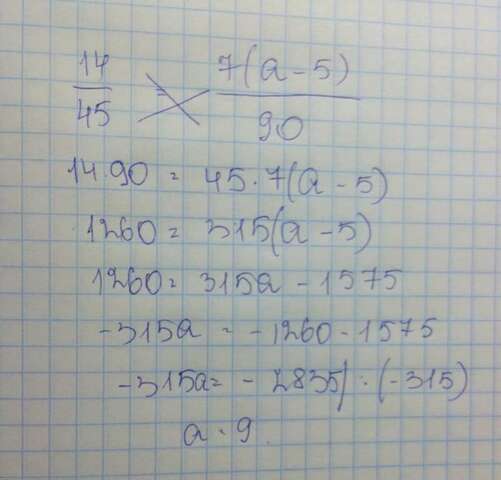 14/45 7(a-5)/90
14·90 = 45·7(a-5)
1260 = 315(a-5)
1260 = 315a - 1575
-315a = -1260 - 1575
-315a = -2835/ : (-315)
a = 9